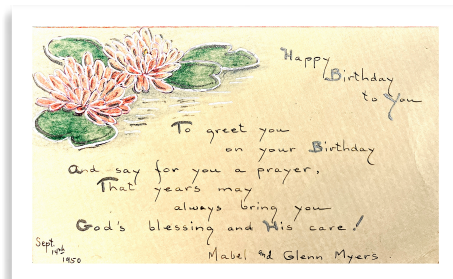 Happy
Birthday
to You
To greet you
on your Birthday
And say for you a prayer,
That years may
always bring you
God's blessing and His care!
Sept.
19th
1950
Mabel and Glenn Myers